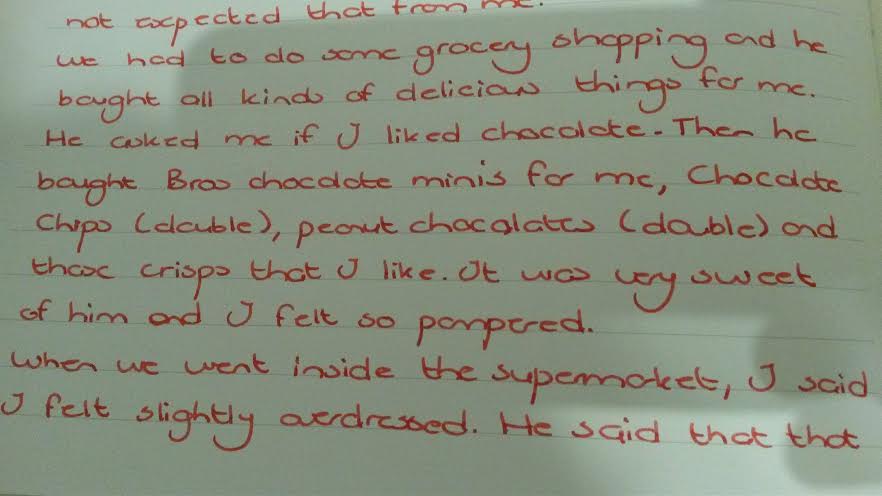 not expected that from me.
we had to do some grocery shopping and he
bought all kinds of delicious things for me.
He asked me if I liked chocolate. Then he
bought Bros chocolate minis for me, Chocolate
Chips (double), peanut chocolates (double) and
those crisps that I like. It was very sweet
of him and I felt so pampered.
When we went inside the supermarket, I said
I felt slightly overdressed. He said that that